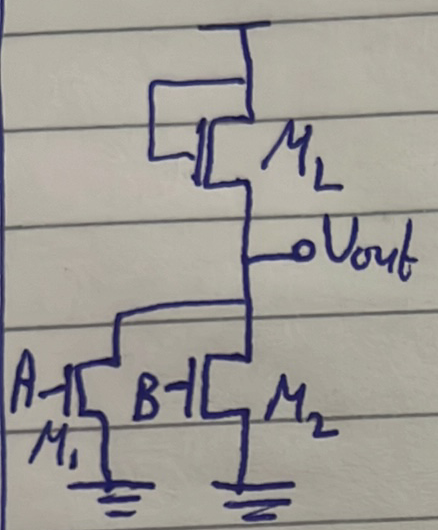 M_L
Vout
A
B
M_1
M_2